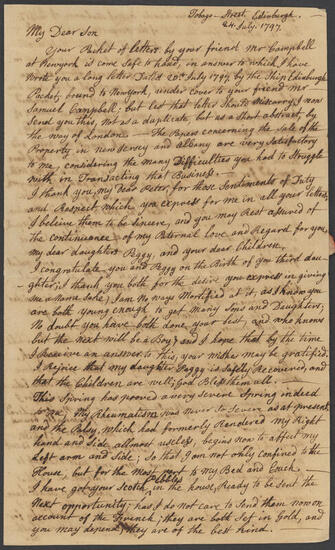 Tobago-Street Edinburgh.
24. July. 1797.
My Dear Son
Your Packet of letters, by your friend Mr Campbell
at Newyork is come Safe to hand, in answer to which I have
Wrote you a long letter Dated 20th July 1797, by the Ship Edinburgh
Packet, bound to Newyork, under cover to your friend Mr
Samuel Campbell; but lest that letter Should Miscarry, I now
Send you this, not as a duplicate, but as a Short abstract, by
the way of London — The Papers concerning the Sale of the
Property in New Jersey and Albany are very Satisfactory
to me, considering the many Difficulties you had to Struggle
with in Transacting that Business. —
I thank you, my Dear Peter, for those Sentiments of Duty
and Respect which you express for me in all your letters,
I believe them to be Sincere, and you may Rest assured of
the continuance of my Paternal Love and Regard for you,
my dear daughter Peggy, and your dear Children.
I congratulate you and Peggy on the Birth of your third daug-
ghter; I thank you both for the desire you express in giving
me a Name Sake; I am No way Mortified at it, as I know you
are both young enough to get Many Sons and Daughters;
No doubt you have both done your best, and who knows
but the Next will be a Boy; and I hope that by the time
I Receive an answer to this, your wishes may be gratified.
I rejoice that my daughter Peggy is Safely Recovered, and
that the Children are well; God Bless them all. —
This Spring has prooved a very Severe Spring indeed
to me. My Rheumatism was never So Severe as at present,
and the Palsy, which had formerly Rendered my Right
hand and Side allmost useless, begins now to affect my
Left arm and Side; So that I am not only confined to the
House, but for the most part to my Bed and Couch.
I have got your Scotch Pebbles in the house, Ready to be Sent the
Next opportunity; but I do not care to Send them now on
account of the French; they are both Set in Gold, and
you may depend, they are of the best kind.